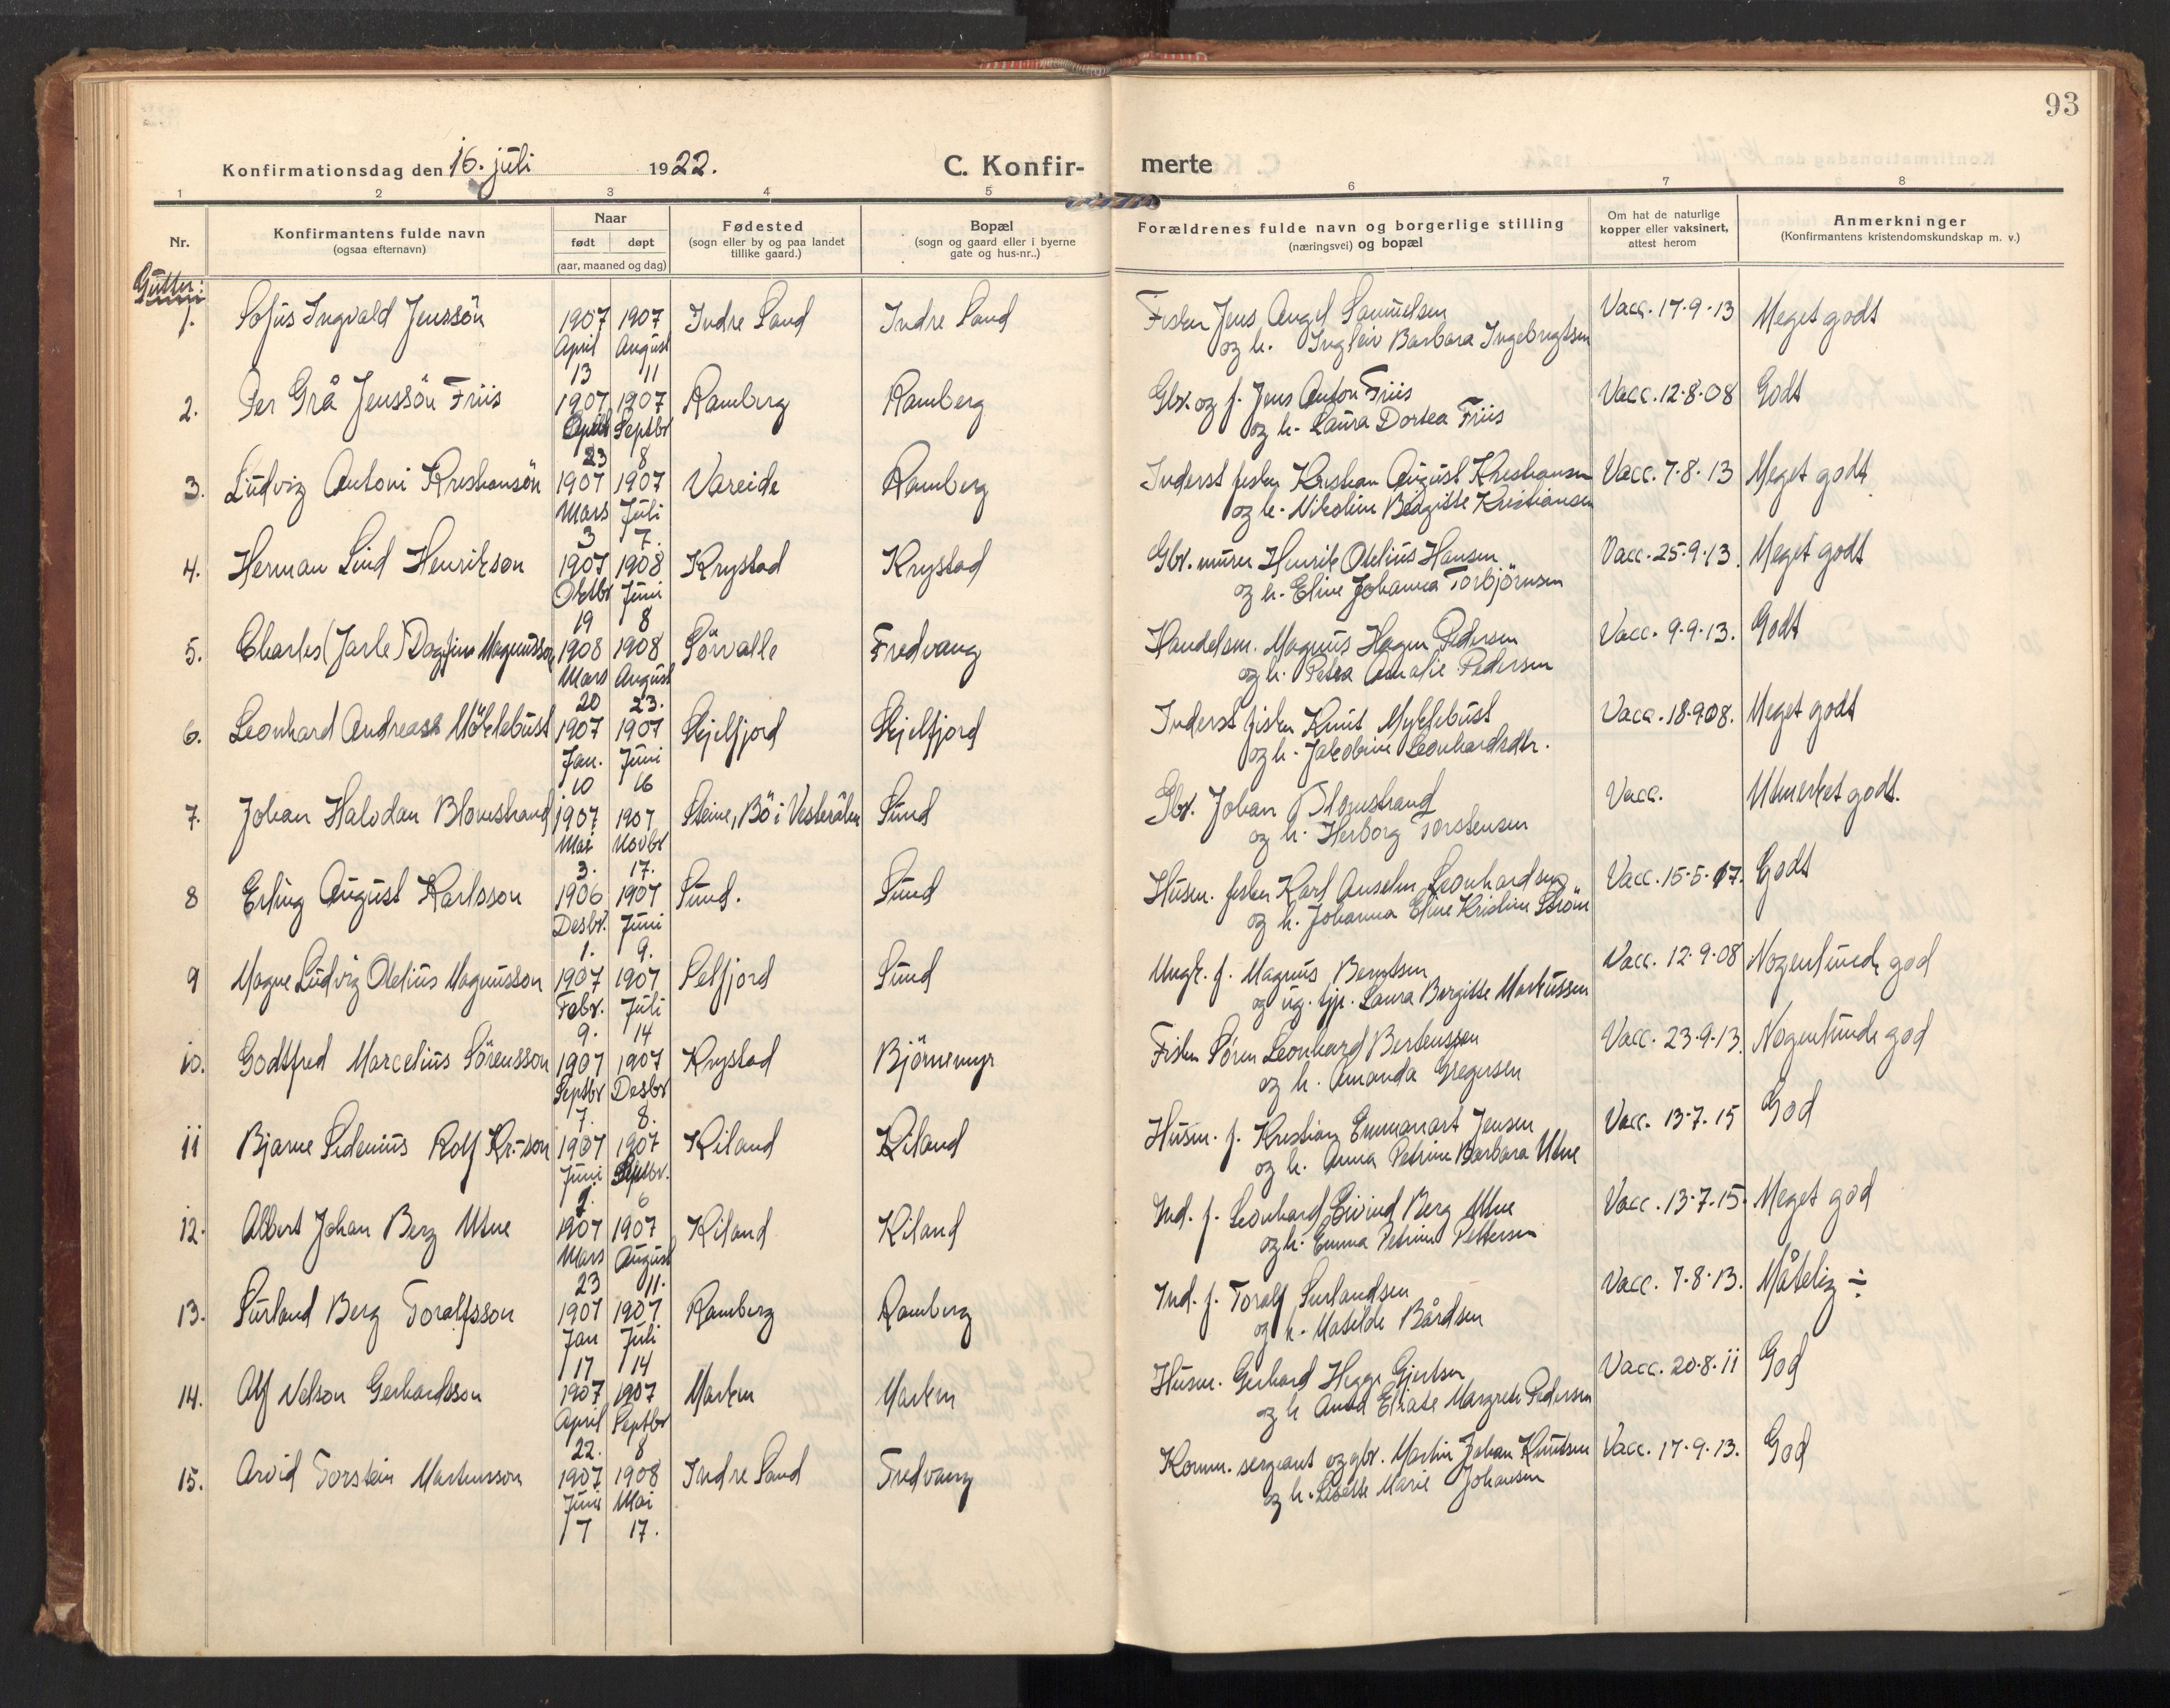 93
Konfirmationsdag den 16. juli 1922. C. Konfir- merte
1 2 3 4 5 6 7 8
Nr.
Konfirmantens fulde navn
(ogsaa efternavn)
Naar
født døpt
(aar, maaned og dag)
Fødested
(sogn eller by og paa landet
tillike gaard.)
Bopæl
(sogn og gaard eller i byerne
gate og hus-nr..)
Forældrenes fulde navn og borgerlige stilling
(næringsvei) og bopæl
Om hat de naturlige
kopper eller vaksinert,
attest herom
Anmerkninger
(Konfirmantens kristendomskundskap m. v.)
Gutter:
1. Sofus Ingvald Jenssön 1907 1907 Indre Sand Indre Sand Fisker Jens Angel Samuelsen Vacc. 17-9-13 Meget godt
April August og h. Ingleiv Barbara Ingebrigtsen
13 11
2. Per Grå Jenssön Friis 1907 1907 Ramberg Ramberg Gbr. og f. Jens Anton Friis Vacc. 12-8-08 Godt
April Septbr og h. Laura Dortea Friis
23 8
3. Ludvig Antoni Kristiansön 1907 1907 Vareide Ramberg Inderst fisker Kristian August Kristiansen Vacc. 7-8-13 Meget godt
Mars Juli og h. Nikoline Birgitte Kristiansen
3 7.
4. Herman Lind Henrikson 1907 1908 Krystad Krystad Gbr. murer Henrik Otelius Hansen Vacc. 25-9-13. Meget godt
Oktbr Juni og h. Eline Johanna Torbjörnsen
19 8
5. Charles (Jarle) Dagfinn Magnusson 1908 1908 Sörvalle Fredvang Handelsm. Magnus Hagen Pedersen Vacc. 9-9-13. Godt
Mars August og h. Petra Amalie Pedersen
20 23.
6. Leonhard Andreas Möklebust 1907 1907 Skjelfjord Skjelfjord Inderst fisker Knut Myklebust Vacc. 18-9 08. Meget godt
Jan. Juni og h. Jakobine Leonhardsdtr.
10 16
7. Johan Halvdan Blomstrand 1907 1907 Steine, Bö i Vesterålen Sund Gbr. Johan Blomstrand Vacc. Utmerket godt.
Mai Novbr og h. Herborg Torstensen
3. 17.
8 Erling August Karlsson 1906 1907 Sund. Sund Husm. fisker Karl Anselm Leonhardsen Vacc. 15-5-17. Godt
Desbr. Juni og h. Johanna Eline Kristine Ström
1. 9.
9 Magne Ludvig Otelius Magnusson 1907 1907 Selfjord Sund Ungk. f. Magnus Berntsen Vacc. 12-9-08 Nogenlunde god
Febr. Juli og ug. tjp. Laura Bergitte Markussen
9. 14
10. Godtfred Marcelius Sörensson 1907 1907 Krystad Björnemyr Fisker Sören Leonhard Bertenssen Vacc. 23-9-13. Nogenlunde god
Septbr Desbr og h. Amanda Gregersen
7. 8.
11 Bjarne Sedenius Rolf Kr.-son 1907 1907 Kiland Kiland Husm. f. Kristian Emmanart Jensen Vacc. 13-7-15 God
Juni Septbr. og h. Anna Petrine Barbara Utne
1. 6
12. Albert Johan Berg Utne 1907 1907 Kiland Kiland Ind. f. Leonhard Eivind Berg Utne Vacc. 13-7-15. Meget god
Mars August og h. Emma Petrine Pettersen
23 11.
13. Surland Berg Toralfsson 1907 1907 Ramberg Ramberg Ind. f. Toralf Surlandsen Vacc. 7-8-13. Måtelig ÷
Jan Juli og h. Matilde Bårdsen
17 14
14. Alf Nelson Gerhardsson 1907 1907 Marken Marken Husm. Gerhard Hegge Gjertsen Vacc. 20-8-11 God
April Septbr og h Anna Elisase Margrete Pedersen
22. 8
15. Arvid Torstein Martinsson 1907 1908 Indre Sand Fredvang Komm. sergeant og gbr. Martin Johan Knutsen Vacc. 17-9-13. God
Juni Mai og h. Lisette Marie Johansen
17 17.